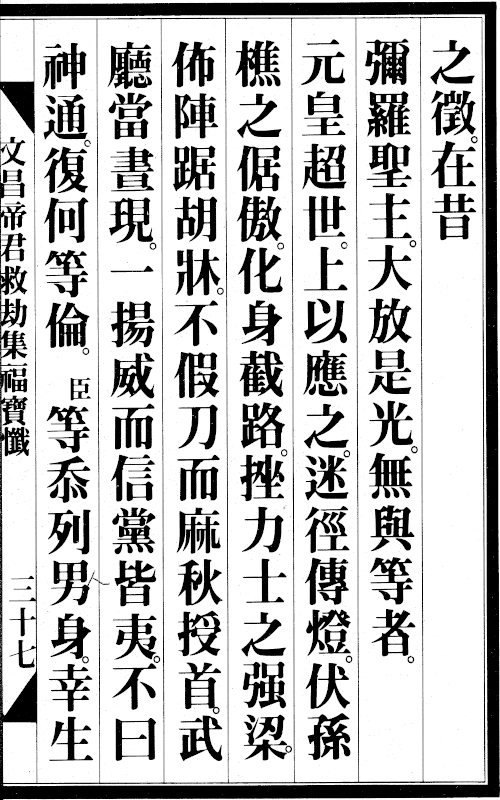 之徵。在昔
彌羅聖主。大放是光。無與等者。
元皇超世。上以應之。迷徑傳燈。伏孫
樵之倨傲。化身截路。挫力士之强梁。
佈陣踞胡牀。不假刀而麻秋授首。武
廳當晝現。一揚威而信黨皆夷。不曰
神通。復何等倫。臣等忝列男身。幸生
文昌帝君救劫集福寶懺
三十七